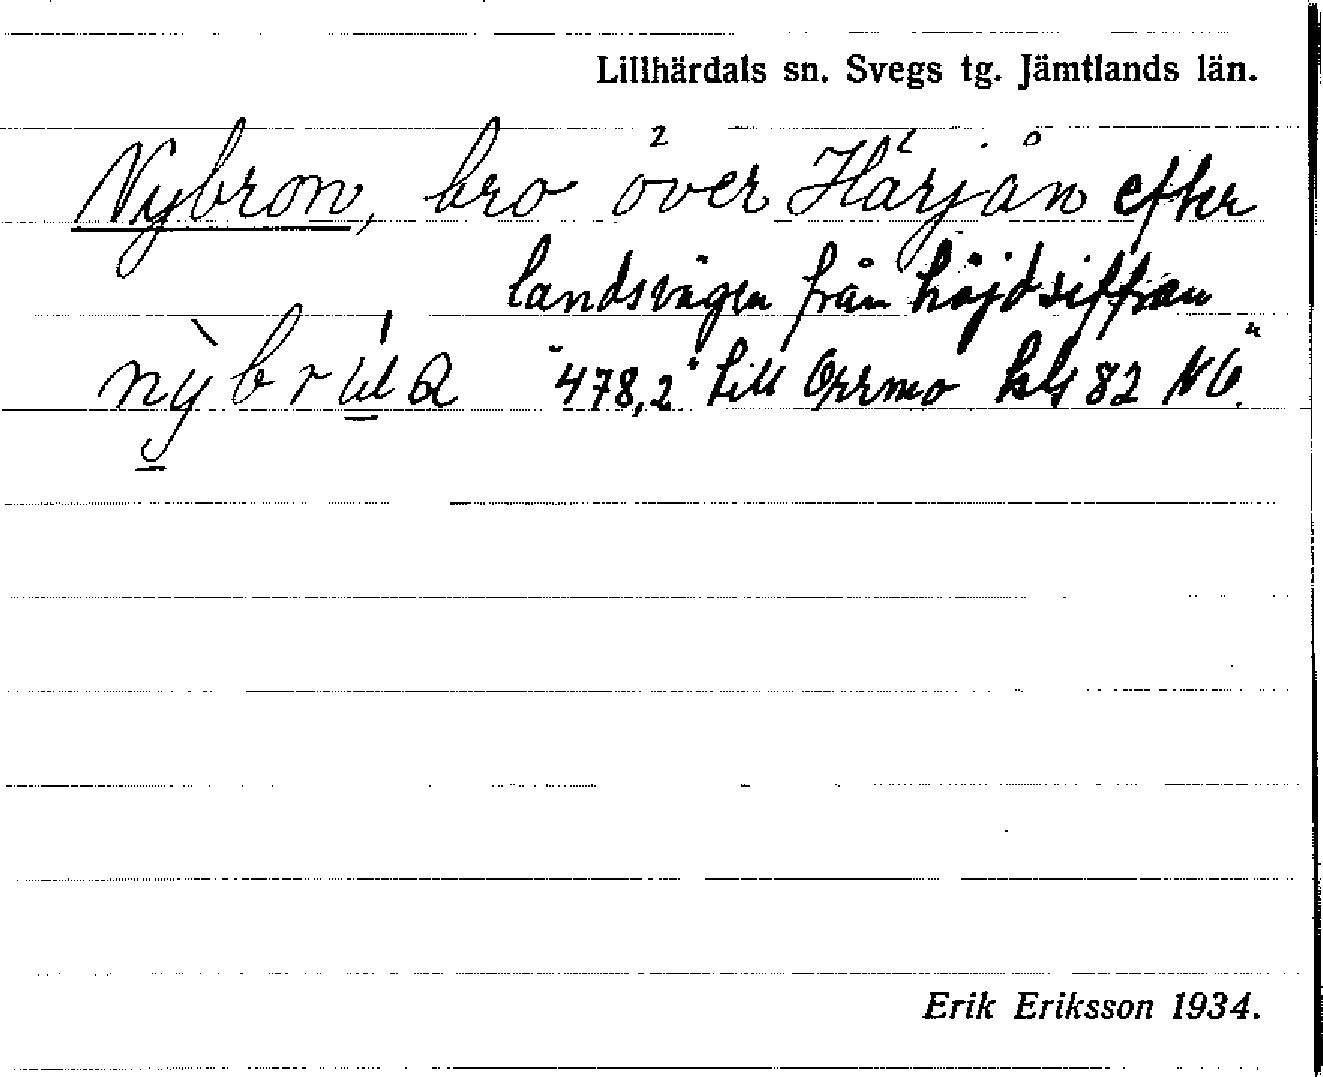 Lillhärdals sn. Svegs tg. Jämtlands län.
Nybron, bro över Härjån efter
landsvägen från höjdsiffran
"478,2" till Orrmo kbl 82 NV.
Erik Eriksson 1934.